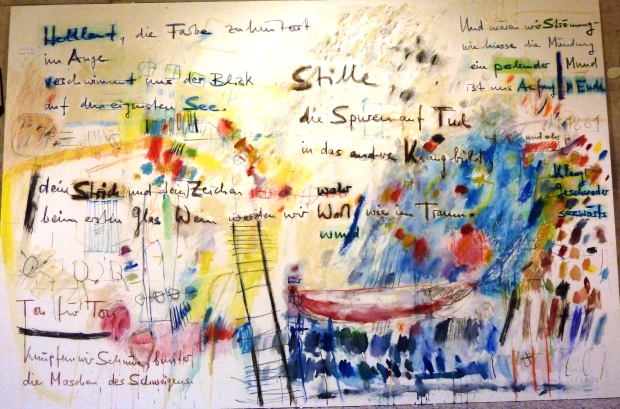 die Farbe
im Auge
verschwimmt uns der Blick
auf den eigensten See.
Stille,
die Spuren auf
in das andere Klangbild,
dein Strich und dein Zeichen
wahr
beim ersten Glas Wein werden wir Wort wie im Traum.
wund
Und wären wir Strömung
wie hiesse die Mündung
ein Mund
ist uns Anfang Ende
und aber
Klang
Geschwader
seewärts
Ton für Ton
knüpfen wir
die Maschen des Schweigens.